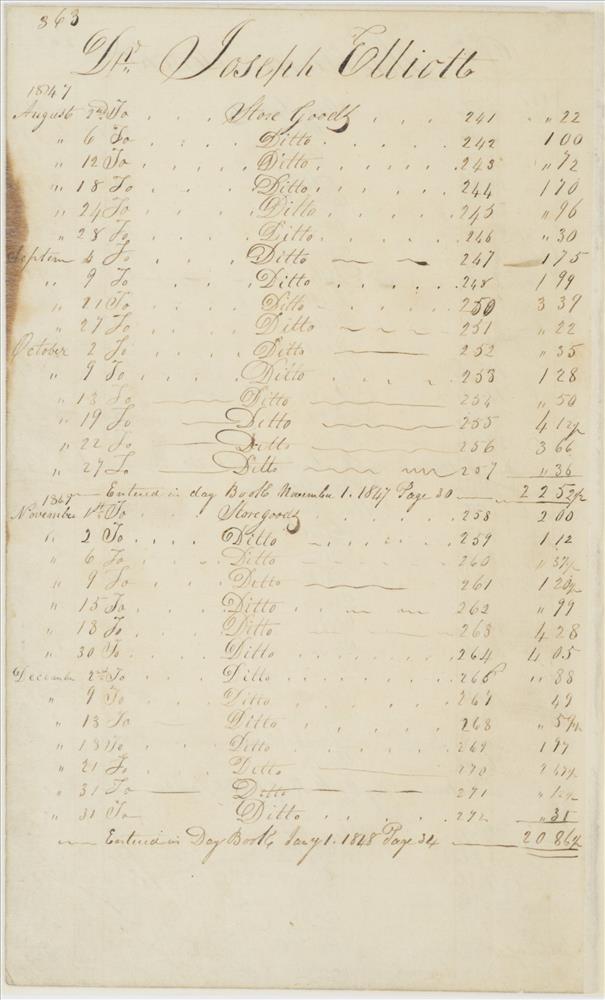 363
Dr. Joseph Elliott
1847
August 2nd To . . . Store Goods . . . 241 " 22
" 6 To . . . Ditto . . . . 242 1 00
" 12 To . . . Ditto . . . . 243 " 72
" 18 To . . . Ditto . . . . 244 1 70
" 24 To . . . Ditto . . . . 245 " 96
" 28 To . . . Ditto . . . . 246 " 30
Septem 4 To . . . Ditto 247 1 75
" 9 To . . . Ditto . . . . 248 1 99
" 21 To . . . Ditto 250 3 39
" 27 To . . . Ditto 251 " 22
October 2 To . . . Ditto 252 " 35
" 9 To . . . Ditto . . . . 253 1 28
" 13 To Ditto 254 " 50
" 19 To Ditto 255 4 12½
" 22 To Ditto 256 3 66
" 27 To Ditto 257 " 36
Entered in day Book November 1. 1847 Page 30 22 52½
1847
November 1st To . . . Store goods . . . . 258 2 00
" 2 To . . . Ditto . . . . 259 1 12
" 6 To . . . Ditto 260 " 37½
" 9 To . . . Ditto 261 1 20½
" 15 To . . . Ditto 262 " 99
" 18 To . . . Ditto 263 4 28
" 30 To . . . Ditto . . . . 264 4 05
December 2nd To . . . Ditto . . . . 266 " 88
" 9 To . . . Ditto . . . . 267 49
" 13 To Ditto . . . . 268 "
" 18 To . . . Ditto . . . . 269 1 97
" 21 To . . . Ditto 270
" 31 To Ditto 271 " 12½
" 31 To Ditto . . . . 272 " 31
Entered in Day Book Jany 1. 1848 Page 34 20 86½